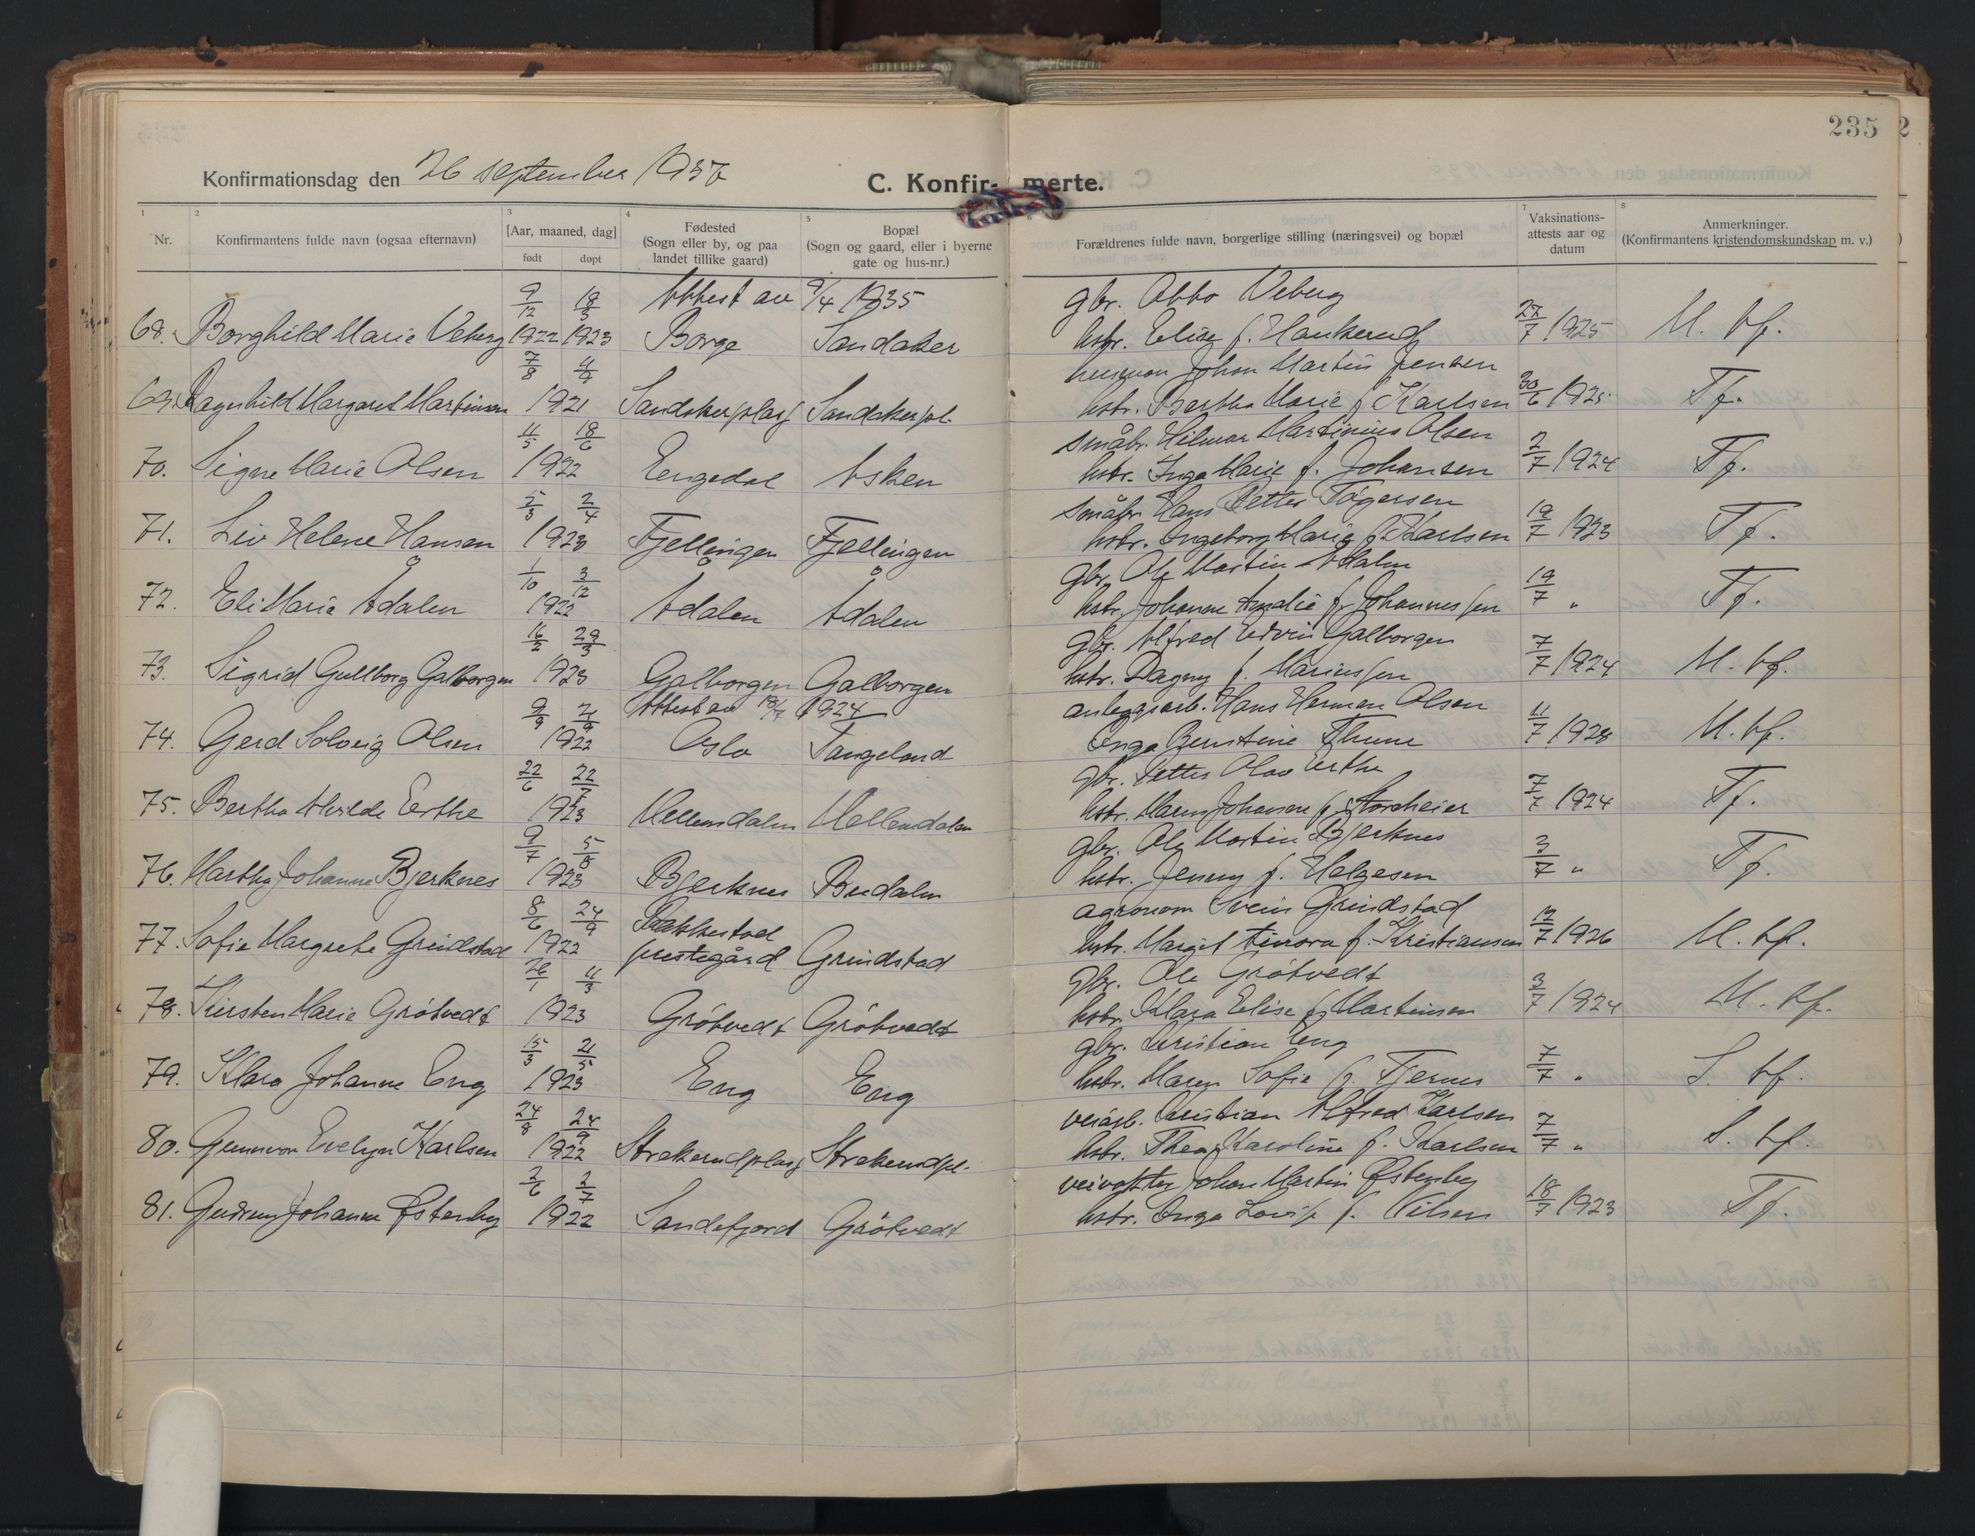 235
2
Konfirmationsdag den 26 september 1937
C. Konfir- merte.
1 2 3 4 5 6 7 8
Nr.
Konfirmantens fulde navn (ogsaa efternavn)
[Aar, maaned, dag]
født døpt
Fødested
(Sogn eller by, og paa
landet tillike gaard)
Bopæl
(Sogn og gaard, eller i byerne
gate og hus-nr.)
Forældrenes fulde navn, borgerlige stilling (næringsvei) og bopæl
Vaksinations-
attests aar og
datum
Anmerkninger.
(Konfirmantens kristendomskundskap m. v.)
9/12 18/3 Attest av 9/4 1935 gbr. Otto Veberg
68. Borghild Marie Veberg 1922 1923 Borge Sandaker hstr. Elise f. Haukerud 27/7 1925 M. tf.
7/8 4/9 husmann Johan Martin Jensen
69. Ragnhild Margaret Martinsen 1921 Sandakerplass Sandakerpl. hstr. Bertha Marie f. Karlsen 30/6 1925 Tf.
4/5 18/6 småbr. Hilmar Martinius Olsen
70. Signe Marie Olsen 1922 Engedal Asken hstr. Inga Marie f. Johansen 2/7 1924 Tf.
5/3 2/4 småbr. Hans Petter Tøgersen
71. Liv Helene Hansen 1923 Fjellingen Fjellingen hstr. Ingeborg Marie f. Karlsen 19/7 1923 Tf.
1/10 3/12 gbr. Ole Martin Ådalen
72. Eli Marie Ådalen 1922 Ådalen Ådalen hstr. Johanne Amalie f. Johannessen 19/7 " Tf.
16/2 29/3 gbr. Alfred Edvin Galborgen
73. Sigrid Gullborg Galborgen 1923 Galborgen Galborgen hstr. Dagny f. Mariussen 7/7 1924 M. tf.
9/9 21/9 Attest av 1924 anleggsarb. Hans Herman Olsen
74. Gerd Solveig Olsen 1922 Oslo Tangeland Inga Thune 11/7 1928 M. tf.
22/6 22/7 gbr. Petter Olav Erthe
75. Bertha Alvilde Erthe 1923 Mellemdalen Mellemdalen hstr. f. Storeheier 7/7 1924 Tf.
9/7 5/8 gbr. Ole Martin Bjerknes
76. Martha Johanne Bjerknes 1923 Bjerknes Budalen hstr. Jenny f. Helgesen 3/7 " Tf.
8/6 24/9 Rakkestad agronom Svein Grindstad
77. Sofie Margrete Grindstad 1922 prestegård Grindstad hstr. Margit Tinora f. Kristiansen 12/7 1926 M. tf.
26/1 11/3 gbr. Ole Grøtvedt
78. Kirsten Marie Grøtvedt 1923 Grøtvedt Grøtvedt hstr. Klara Elise f. Martinsen 3/7 1924 M. tf.
15/3 21/5 gbr. Kristian Eng
79. Klara Johanne Eng 1923 Eng Eng hstr. Maren Sofie f. Tjernes 7/7 " S. tf.
24/8 24/9 veiarb. Kristian Alfred Karlsen
80. Gunnvor Evelyn Karlsen 1922 Strekerudplass Strekerudpl. hstr. Thea Karoline f. Karlsen 7/7 " S. tf.
2/6 2/7 veivokter Johan Martin Østenby
81. Gudrun Johanne Østenby 1922 Sandefjord Grøtvedt hstr. Inga Lovise f. Nilsen 18/7 1923 Tf.